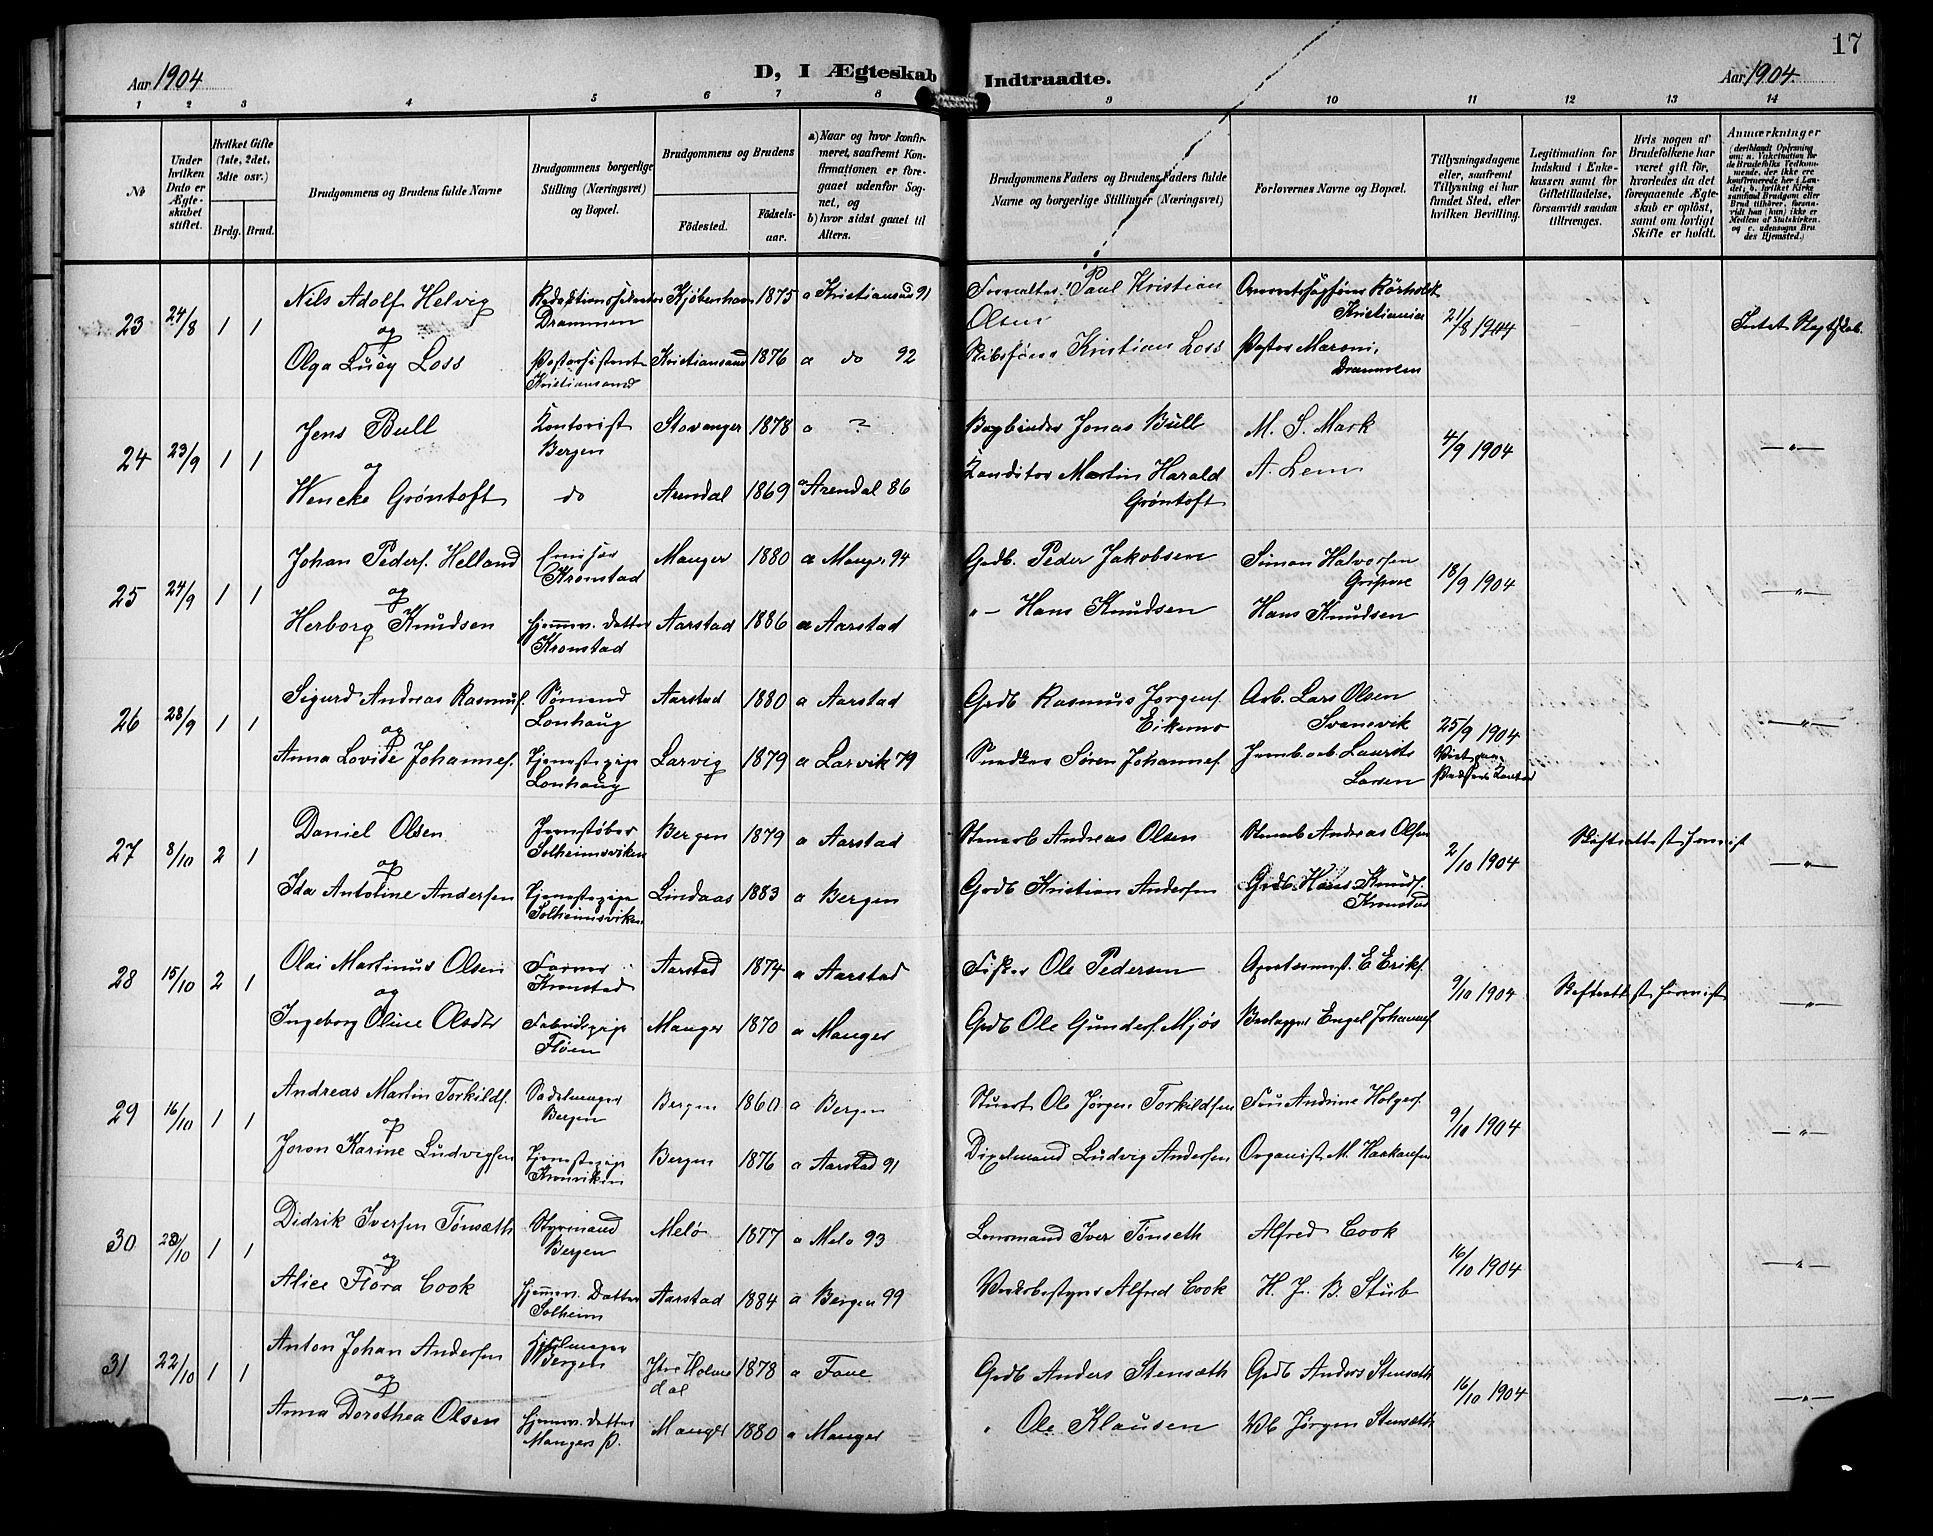 17
Aar 1904
D, I Ægteskab Indtraadte.
Aar 1904.
1 2 3 4 5 6 7 8 9 10 11 12 13 14
No
Under hvilken Dato er Ægteskabet stiftet.
Hvilket Gifte (1ste, 2det, 3die osv.)
Brdg. Brud.
Brudgommens og Brudens fulde Navne
Brudgommens borgerlige Stilling (Næringsvei) og Bopæl.
Brudgommens og Brudens
Fødested.
Fødselsaar.
a) Naar og hvor konfirmeret, saafremt Konfirmationen er foregaaet udenfor Sognet, og
b) hvor sidst gaaet til Alters.
Brudgommens Faders og Brudens Faders fulde Navne og borgerlige Stillinger (Næringsvei)
Forlovernes Navne og Bopæl.
Tillysningsdagene eller, saafremt Tillysning ei har fundet Sted, efter hvilken Bevilling.
Legitimation for Indskud i Enkekassen samt for Giftetilladelse, forsaavidt saadan tiltrænges.
Hvis nogen af Brudefolkene har været gift før, hvorledes da det foregaaende Ægteskab er opløst, samt om lovligt Skifte er holdt.
Anmærkninger
23 24/8 1 1
Nils Adolf Helvig
Drammen Kjøbenhavn 1875 a Kristiansand 91
Paul Kristian Olsen
Kristiania
21/8 1904
og
Olga Lucy Loss
Kristiansand Kristiansand 1876 a do 92
Kristian Loss
Drammen
24 23/9 1 1
Jens Bull
Kontorist Bergen Stavanger 1878 a
Bogbinder Jonas Bull
M. S. Mark
4/9 1904
og
Wencke Grøntoft
do Arendal 1869 a Arendal 86
Konditor Martin Harald Grøntoft
A. Lem
25 24/9 1 1
Johan Peders. Helland
Kronstad Manger 1880 a Manger 94
Grdb. Peder Jakobsen
Simon Halvorsen
18/9 1904
og
Herborg Knudsen
hjemmv. Datter Kronstad Aarstad 1886 a Aarstad
" - Hans Knudsen
Hans Knudsen
26 28/9 1 1
Sigurd Andreas Rasmus.
Sømand Lonhaug Aarstad 1880 a Aarstad
Grdb Rasmus Jørgens. Eikemo
Arb. Lars Olsen Svanevik
25/9 1904
og
Anna Lovise Johannes.
Tjenestepige Lonhaug Larvig 1879 a Larvik 79
Snedker Søren Johannes.
Jernb. arb Laurits Larsen
27 8/10 2 1
Daniel Olsen
Jernstøber Solheimsviken Bergen 1879 a Aarstad
Stenarb Andreas Olsen
Stenarb Andreas Olsen
2/10 1904
og
Ida Antotine Andersen
Tjenestepige Solheimsviken Lindaas 1883 a Bergen
Grdb Kristian Andersen
Grdb. Hans Knuds. Kronstad
28 15/10 2 1
Olai Martinus Olsen
Kronstad Aarstad 1874 a Aarstad
Fisker Ole Pedersen
E Eriks.
9/10 1904
og
Ingeborg Oline Olsdtr
Fabrikpige Fløen Manger 1870 a Manger
Grdb Ole Gunders. Mjøs
Engel Johannes.
29 16/10 1 1
Andreas Martin Torkilds.
Sadelmager Bergen Bergen 1860 a Bergen
Stuert Ole Jørgen Torkildsen
Fru Andrine Holgers.
9/10 1904
og
Joron Karine Ludvigsen
Tjenestepige Kronviken Bergen 1876 a Aarstad 91
Ludvig Andersen
Organist M. Haakonsen
30 23/10 1 1
Didrik Iversen Tønsæth
Styrmand Bergen Melø 1877 a Melø 93
Lensmand Iver Tønseth
Alfred Cook
16/10 1904
og
Alice Flora Cook
hjemmv. Datter Solheim Aarstad 1884 a Bergen 99
Alfred Cook
H. J. B. Stub
31 22/10 1 1
Anton Johan Andersen
Bergen Ytre Holmedal 1878 a Fane
Grdb Anders Stensæth
Grdb Anders Stensæth
16/10 1904
og
Anna Dorothea Olsen
hjemmv. Datter Mangers P. Manger 1880 a Manger
" Ole Klausen
Jørgen Stensæth